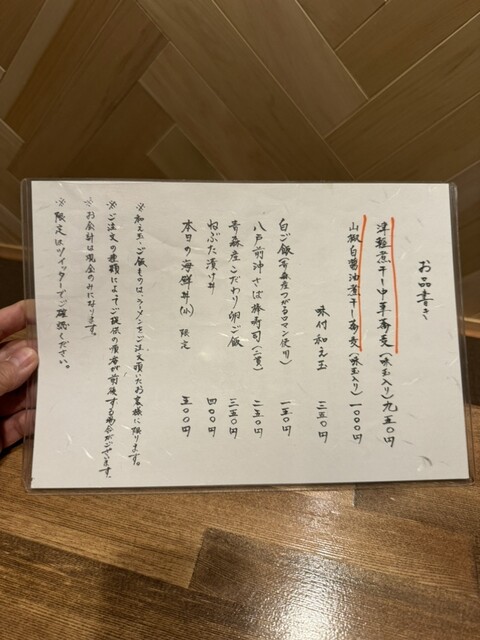 お品書き
津軽煮干し中華蕎麦(味玉入り) 九五〇円
山椒白醤油煮干し蕎麦(味玉入り) 一〇〇〇円
味付和え玉 三五〇円
白ご飯(青森産つがるロマン使用) 一五〇円
八戸前沖さば棒寿司(二貫) 二五〇円
青森産こだわり卵ご飯 三五〇円
ねぶた漬け丼 四〇〇円
本日の海鮮丼(小) 限定 五〇〇円
※和え玉・ご飯ものはラーメンをご注文頂いたお客様に限ります。
※ご注文の種類によってご提供の順番が前後する場合がございます。
※お会計は現金のみになります。
※限定はツイッターでご確認ください。